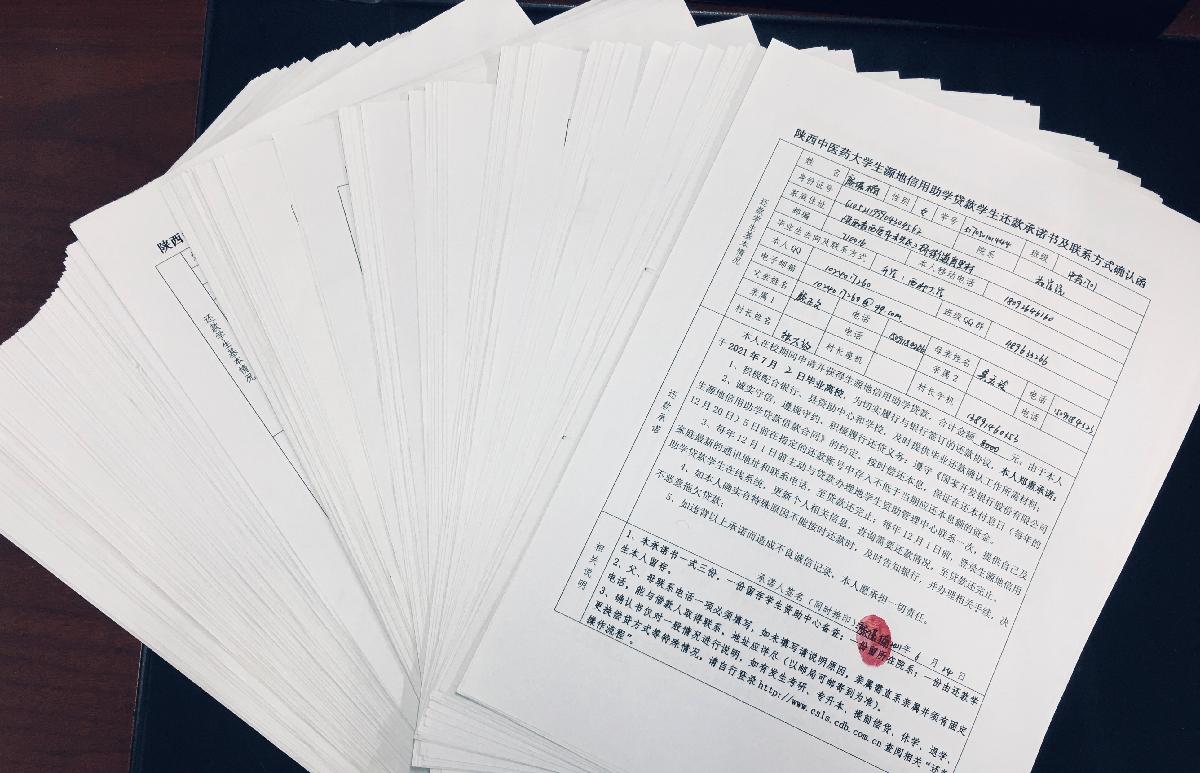 陕西
还款学生基本情况
陕西中医药大学生源地信用助学贷款学生还款承诺书及联系方式确认函
还款学生基本情况
姓 名 性别 女 学号 院系 班级
身份证号
家庭住址
邮编
毕业生去向及联系方式 本人移动电话
本人QQ 班级QQ群
电子邮箱
父亲姓名 电话 母亲姓名 电话
亲属1 电话 亲属2 电话
村长姓名 村长座机 村长手机
还款承诺
本人在校期间申请并获得生源地信用助学贷款,合计金额 8000 元,由于本人
于2021年7月 2 日毕业离校,为切实履行与银行签订的还款协议,本人郑重承诺:
1、积极配合银行、县资助中心和学校,及时提供毕业还款确认工作所需材料;
2、诚实守信,遵规守约,积极履行还贷义务,遵守《国家开发银行股份有限公司
生源地信用助学贷款借款合同》的约定,按时偿还本息,保证在还本付息日(每年的
12月20日)5日前在指定的还款账号中存入不低于当期应还本息额的资金。
3、每年12月1日前主动与贷款办理地学生资助管理中心联系一次,提供自己及
家庭最新的通讯地址和联系电话,至贷款还完止;每年12月1日前,登录生源地信用
助学贷款学生在线系统,更新个人相关信息,查询需要还款情况,至贷款还完止。
4、如本人确实有特殊原因不能按时还款时,及时告知银行,并办理相关手续,决
不恶意拖欠贷款;
5、如违背以上承诺而造成不良诚信记录,本人愿承担一切责任。
承诺人签名(同时捺印) 年 6 月 14 日
相关说明
1、本承诺书一式三份,一份留存学生资助中心备查,一份留所在院系,一份由还款学
生本人留存。
2、父、母联系电话一项必须填写,如未填写请说明原因,亲属需直系亲属并须有固定
电话,能与借款人取得联系,地址应详尽(以邮局可邮寄到为准)。
3、确认书仅对一般情况进行说明,如有发生考研、专升本、提前偿贷、休学、退学、
更换偿贷方式等特殊情况,请自行登录http://www.csls.cdb.com.cn查阅相关“还款
操作流程”。